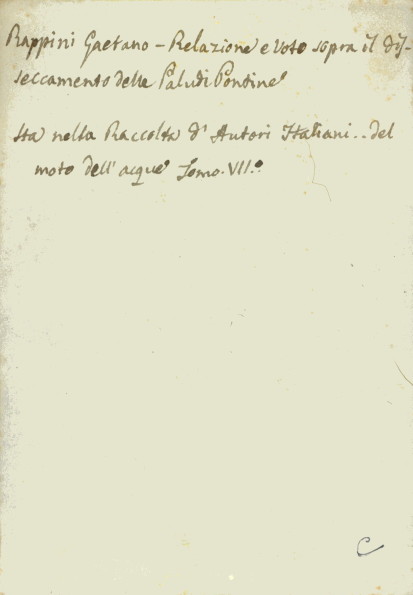 Rappini Gaetano - Relazione e Voto sopra il dis-
seccamento delle Paludi Pontine
Sta nella Raccolta d'Autori Italiani .. del
moto dell'acque Tomo. VII.º
C